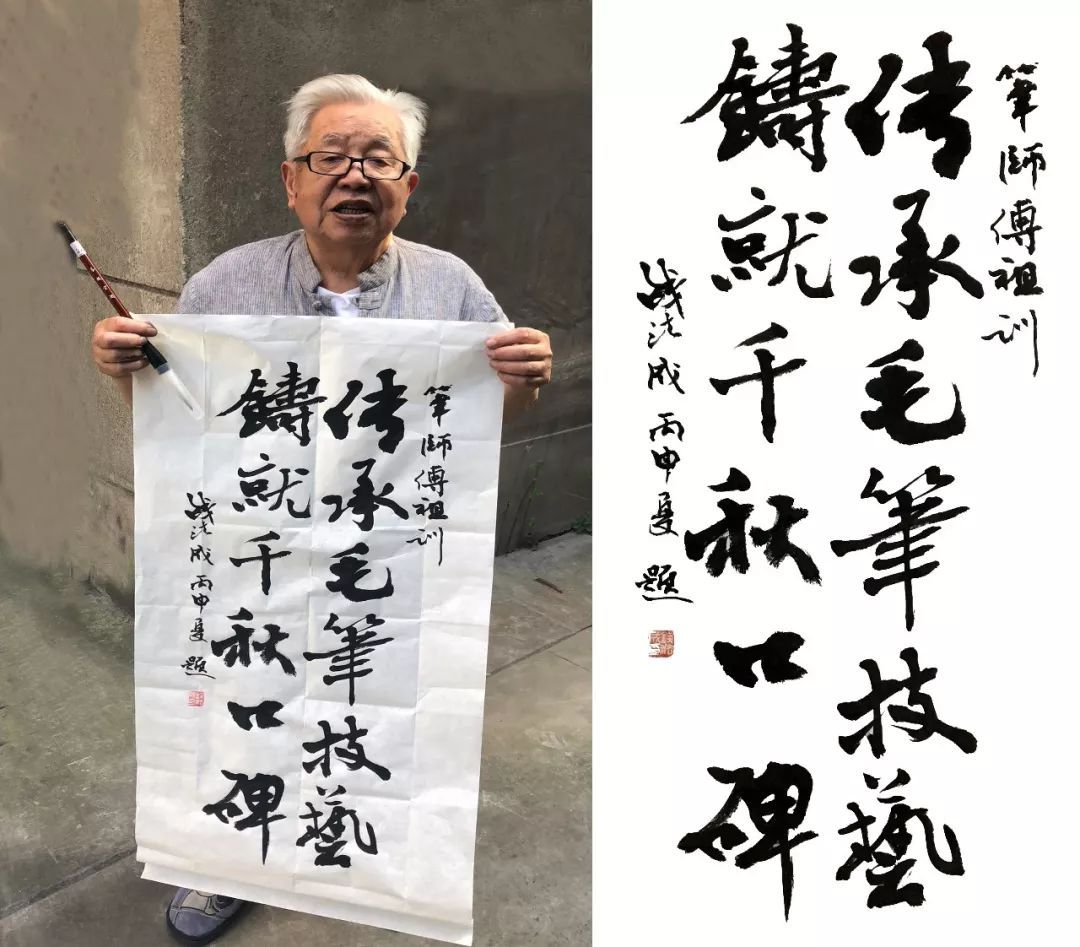 筆師傅祖训
传承毛筆技藝
鑄就千秋口碑
钱法成 丙申夏 题
筆師傅祖训
传承毛筆技藝
鑄就千秋口碑
钱法成 丙申夏 题